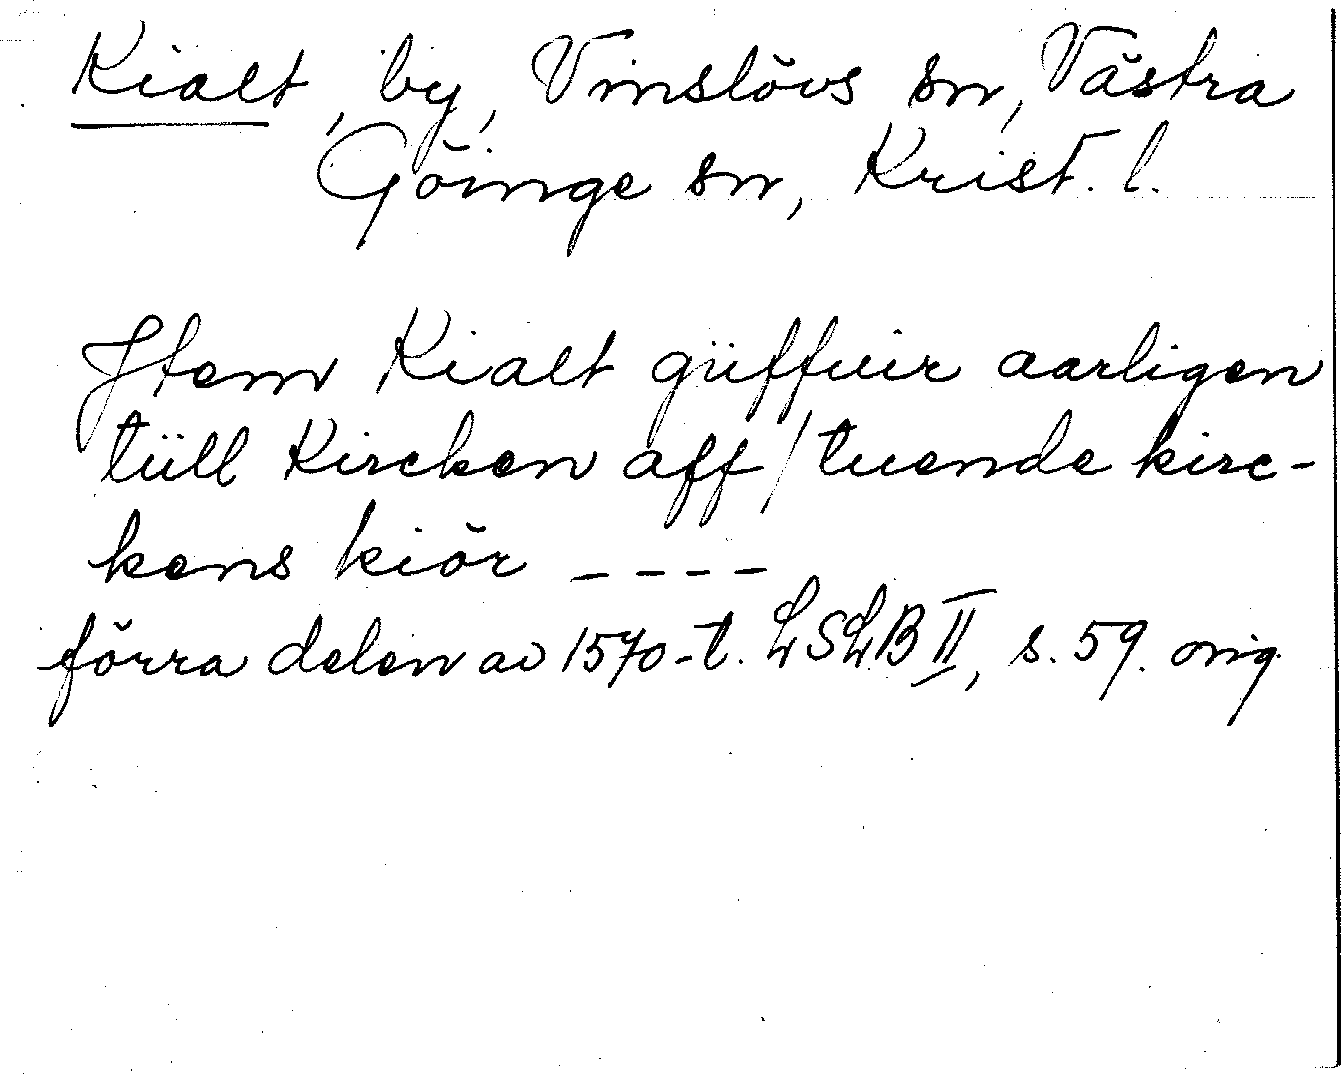 Kialt, by, Vinslövs sn, Västra
Göinge sn, Krist. l.
Jtem Kialt güffuir aarligen
tüll Kircken aff / tuende kirc-
kens kiör ----
förra delen av 1570-t. LSLB II, s. 59. orig.